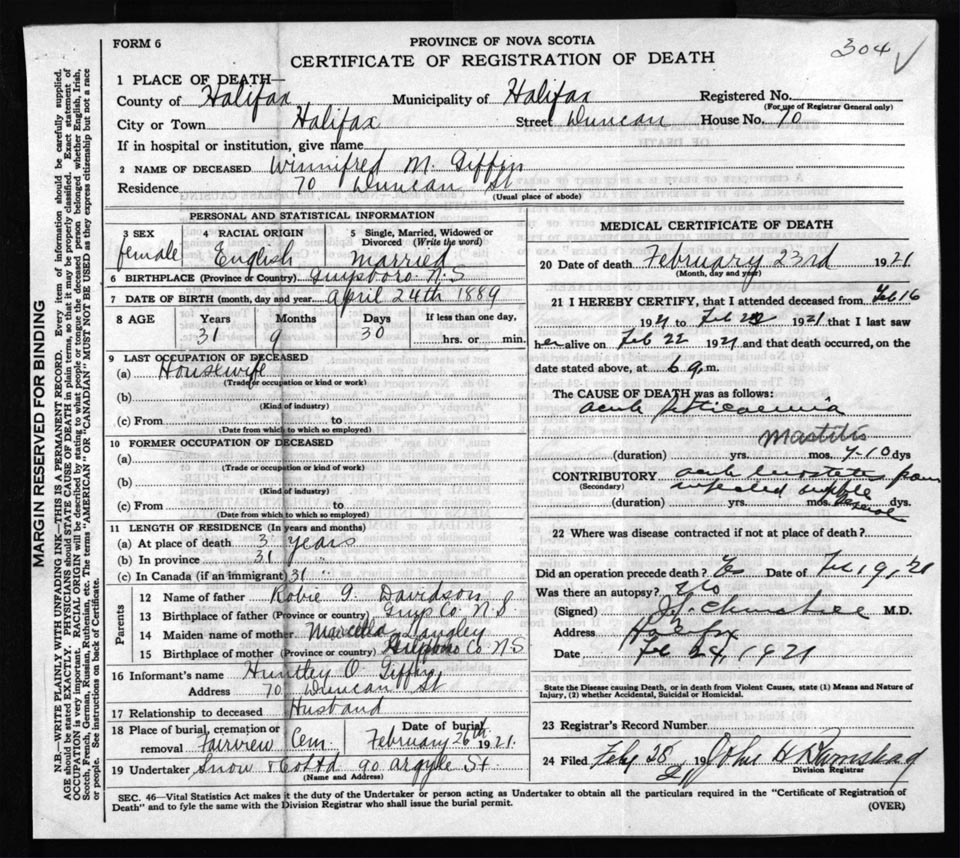 FORM 6
PROVINCE OF NOVA SCOTIA
304 ✓
CERTIFICATE OF REGISTRATION OF DEATH
1 PLACE OF DEATH—
County of Halifax Municipality of Halifax Registered No.
(For use of Registrar General only)
City or Town Halifax Street Duncan House No. 70
If in hospital or institution, give name
2 NAME OF DECEASED Winnifred M. Giffin
Residence 70 Duncan St
(Usual place of abode)
PERSONAL AND STATISTICAL INFORMATION
3 SEX 4 RACIAL ORIGIN 5 Single, Married, Widowed or Divorced (Write the word)
female English Married
6 BIRTHPLACE (Province or Country) Guysboro N.S
7 DATE OF BIRTH (month, day and year) April 24th 1889
8 AGE Years Months Days If less than one day,
31 9 30 hrs. or min.
9 LAST OCCUPATION OF DECEASED
(a) Housewife
(Trade or occupation or kind or work)
(b)
(Kind of industry)
(c) From to
(Date from which to which so employed)
10 FORMER OCCUPATION OF DECEASED
(a)
(Trade or occupation or kind of work)
(b)
(Kind of industry)
(c) From to
(Date from which to which so employed)
11 LENGTH OF RESIDENCE (In years and months)
(a) At place of death 3 years
(b) In province 31 "
(c) In Canada (if an immigrant) 31 "
Parents
12 Name of father Robie G. Davidson
13 Birthplace of father (Province or country) Guys Co N.S.
14 Maiden name of mother Marcella Langley
15 Birthplace of mother (Province or country) Guysboro Co N.S
16 Informant's name Huntley O. Giffin
Address 70 Duncan St
17 Relationship to deceased Husband
18 Place of burial, cremation or removal Fairview Cem. Date of burial, February 26th 1921.
19 Undertaker Snow & Co Ltd 90 Argyle St.
(Name and Address)
MEDICAL CERTIFICATE OF DEATH
20 Date of death February 23rd 1921
(Month, day and year)
21 I HEREBY CERTIFY, that I attended deceased from Feb 16
1921 to Feb 22 1921 that I last saw
her alive on Feb 22 1921 and that death occurred, on the
date stated above, at 6 a.m.
The CAUSE OF DEATH was as follows:
acute septicaemia
Mastitis
(duration) yrs. mos. 7-10 dys
CONTRIBUTORY acute from
(Secondary) infected nipple
(duration) yrs. mos. dys.
22 Where was disease contracted if not at place of death?
Did an operation precede death? Yes Date of Feb 19, '21
Was there an autopsy? No
(Signed) M.D.
Address Halifax
Date Feb 24, 1921
State the Disease causing Death, or in death from Violent Causes, state (1) Means and Nature of Injury, (2) whether Accidental, Suicidal or Homicidal.
23 Registrar's Record Number
24 Filed Feby 28 1921 John H
Division Registrar
SEC. 46—Vital Statistics Act makes it the duty of the Undertaker or person acting as Undertaker to obtain all the particulars required in the "Certificate of Registration of
Death" and to fyle the same with the Division Registrar who shall issue the burial permit.
(OVER)
MARGIN RESERVED FOR BINDING
N.B.—WRITE PLAINLY WITH UNFADING INK—THIS IS A PERMANENT RECORD. Every item of information should be carefully supplied.
AGE should be stated EXACTLY. PHYSICIANS should STATE CAUSE OF DEATH in plain terms, so that it may be properly classified. Exact statement of
OCCUPATION is very important. RACIAL ORIGIN will be described by stating to what people or tongue the deceased person belonged whether English, Irish,
Scotch, French, German, Russian, Ruthenian, etc. The terms "AMERICAN" OR "CANADIAN" MUST NOT BE USED as they express citizenship but not a race
or people. See instructions on back of Certificate.